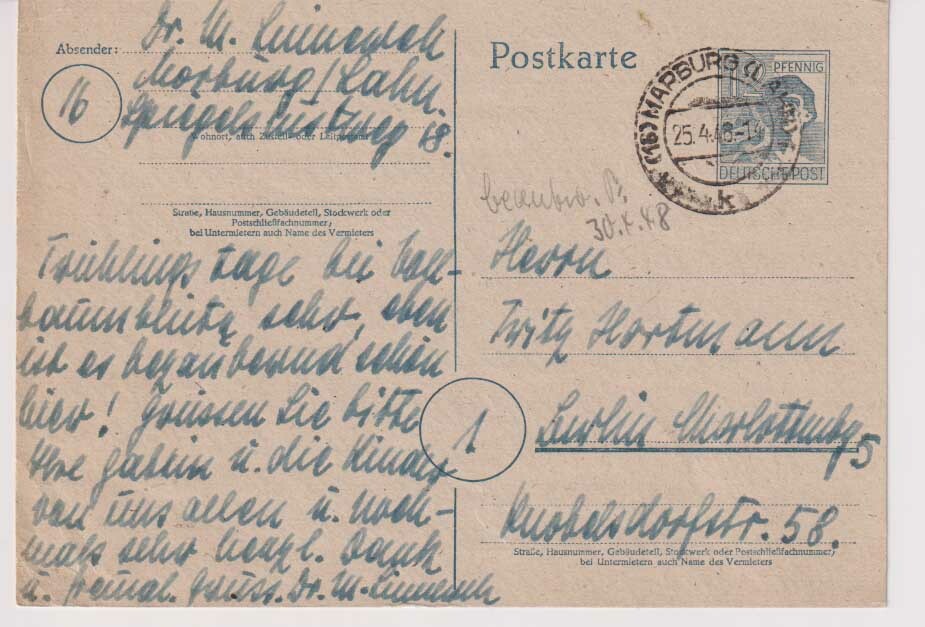 Absender:
Dr. M. Linnewek
Marburg/Lahn
16
Spiegelslustweg 18.
Wohnort, auch Zustell- oder Leitpostamt
Straße, Hausnummer, Gebäudeteil, Stockwerk oder
Postschließfachnummer;
bei Untermietern auch Name des Vermieters
Frühlingstage bei Voll-
baumblüte sehr, eben
ist es bezaubernd schön
hier! Grüssen Sie bitte
Ihre Gattin u. die Kinder
von uns allen u. noch-
mals sehr herzl. Dank
u. freundl. Gruss. Dr. M.
Postkarte
PFENNIG
DEUTSCHE POST
(16) MARBURG (LAHN)
25.4.48.-14
k
beantw.
30.4.48
Herrn
Fritz Hartmann
1
Berlin Charlottenbg
5
Knobelsdorfstr. 58.
Straße, Hausnummer, Gebäudeteil, Stockwerk oder Postschließfachnummer;
bei Untermietern auch Name des Vermieters